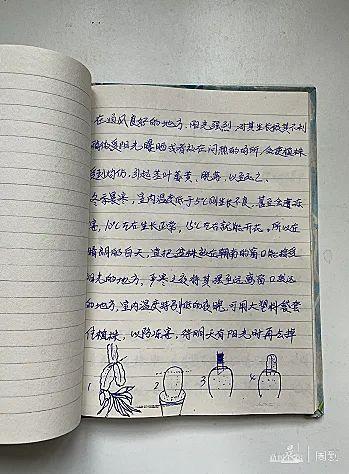 在通风良好的地方。阳光强烈，对其生长极其不利
植株受阳光曝晒或者放在闷热的场所，会使植株
受到灼伤，引起茎叶萎黄、脱落，以至死亡。
冬季寒冷，室内温度低于5℃则生长不良，甚至会遭冻
害，10℃左右生长正常，15℃左右就能开花。所以在
晴朗的白天，宜把盆株放在朝南的窗口能接受
阳光的地方，严寒之夜将其移至远离窗口
的地方。室内温度特别低的夜晚，可用大塑料袋套
住植株，以防冻害，待明天有阳光时再去掉
1
2
3
4